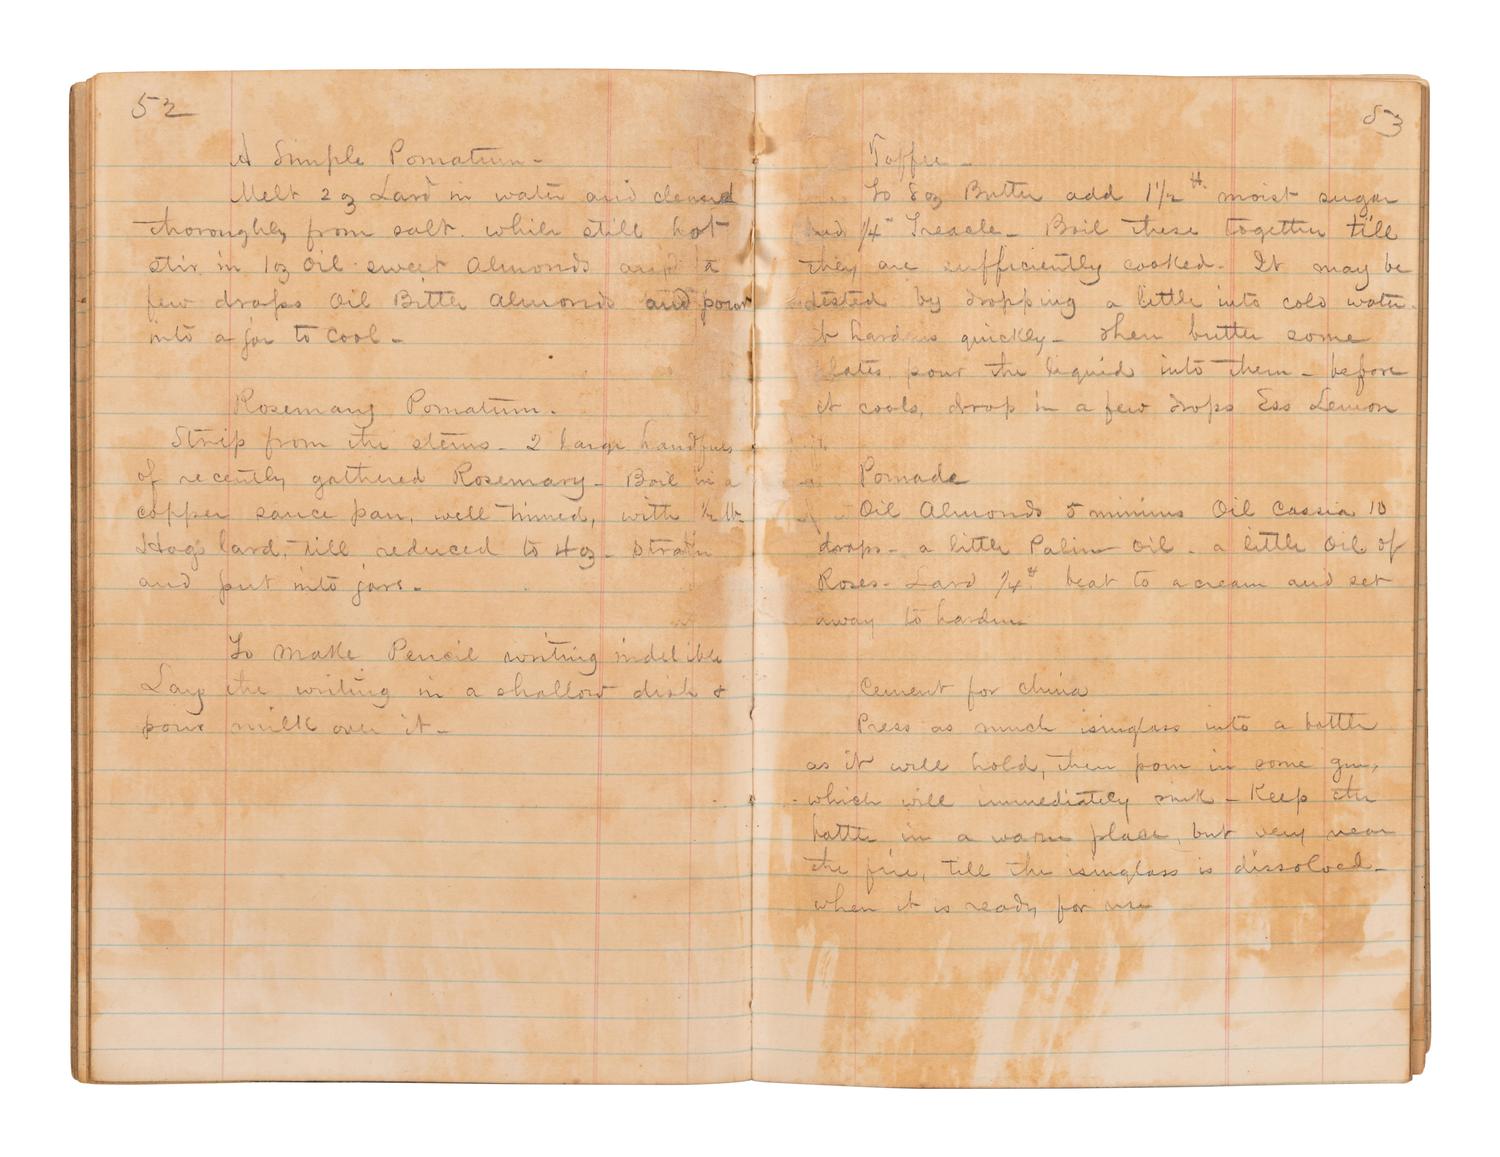 52
A Simple Pomatum -
Melt 2 oz Lard in water and cleansed
thoroughly from salt. while still hot
stir in 1oz Oil sweet Almonds and a
few drops Oil Bitter Almonds and pour
into a jar to cool -
Rosemary Pomatum.
Strip from the stems - 2 large handfuls
of recently gathered Rosemary - Boil in a
copper sauce pan, well tinned, with ½ lb
Hogs lard, till reduced to 4oz - Strain
and put into jars -
To make Pencil writing indelible
Lay the writing in a shallow dish &
pour milk over it -
53
Toffee -
To 8oz Butter add 1½ lb moist sugar
and ¼ " Treacle - Boil these together till
they are sufficiently cooked - It may be
tested by dropping a little into cold water.
quickly - then butter some
plates, pour the liquid into them - before
it cools, drop in a few drops Ess Lemon
Pomade
Oil Almonds 5 minims Oil Cassia 10
drops - a little Palm Oil - a little Oil of
Roses - Lard ¼ lb beat to a cream and set
away to harden
Cement for china
Press as much isinglass into a bottle
as it will hold, then pour in some gin,
which will immediately sink - Keep the
bottle in a warm place, but very near
the fire, till the isinglass is dissolved -
when it is ready for use